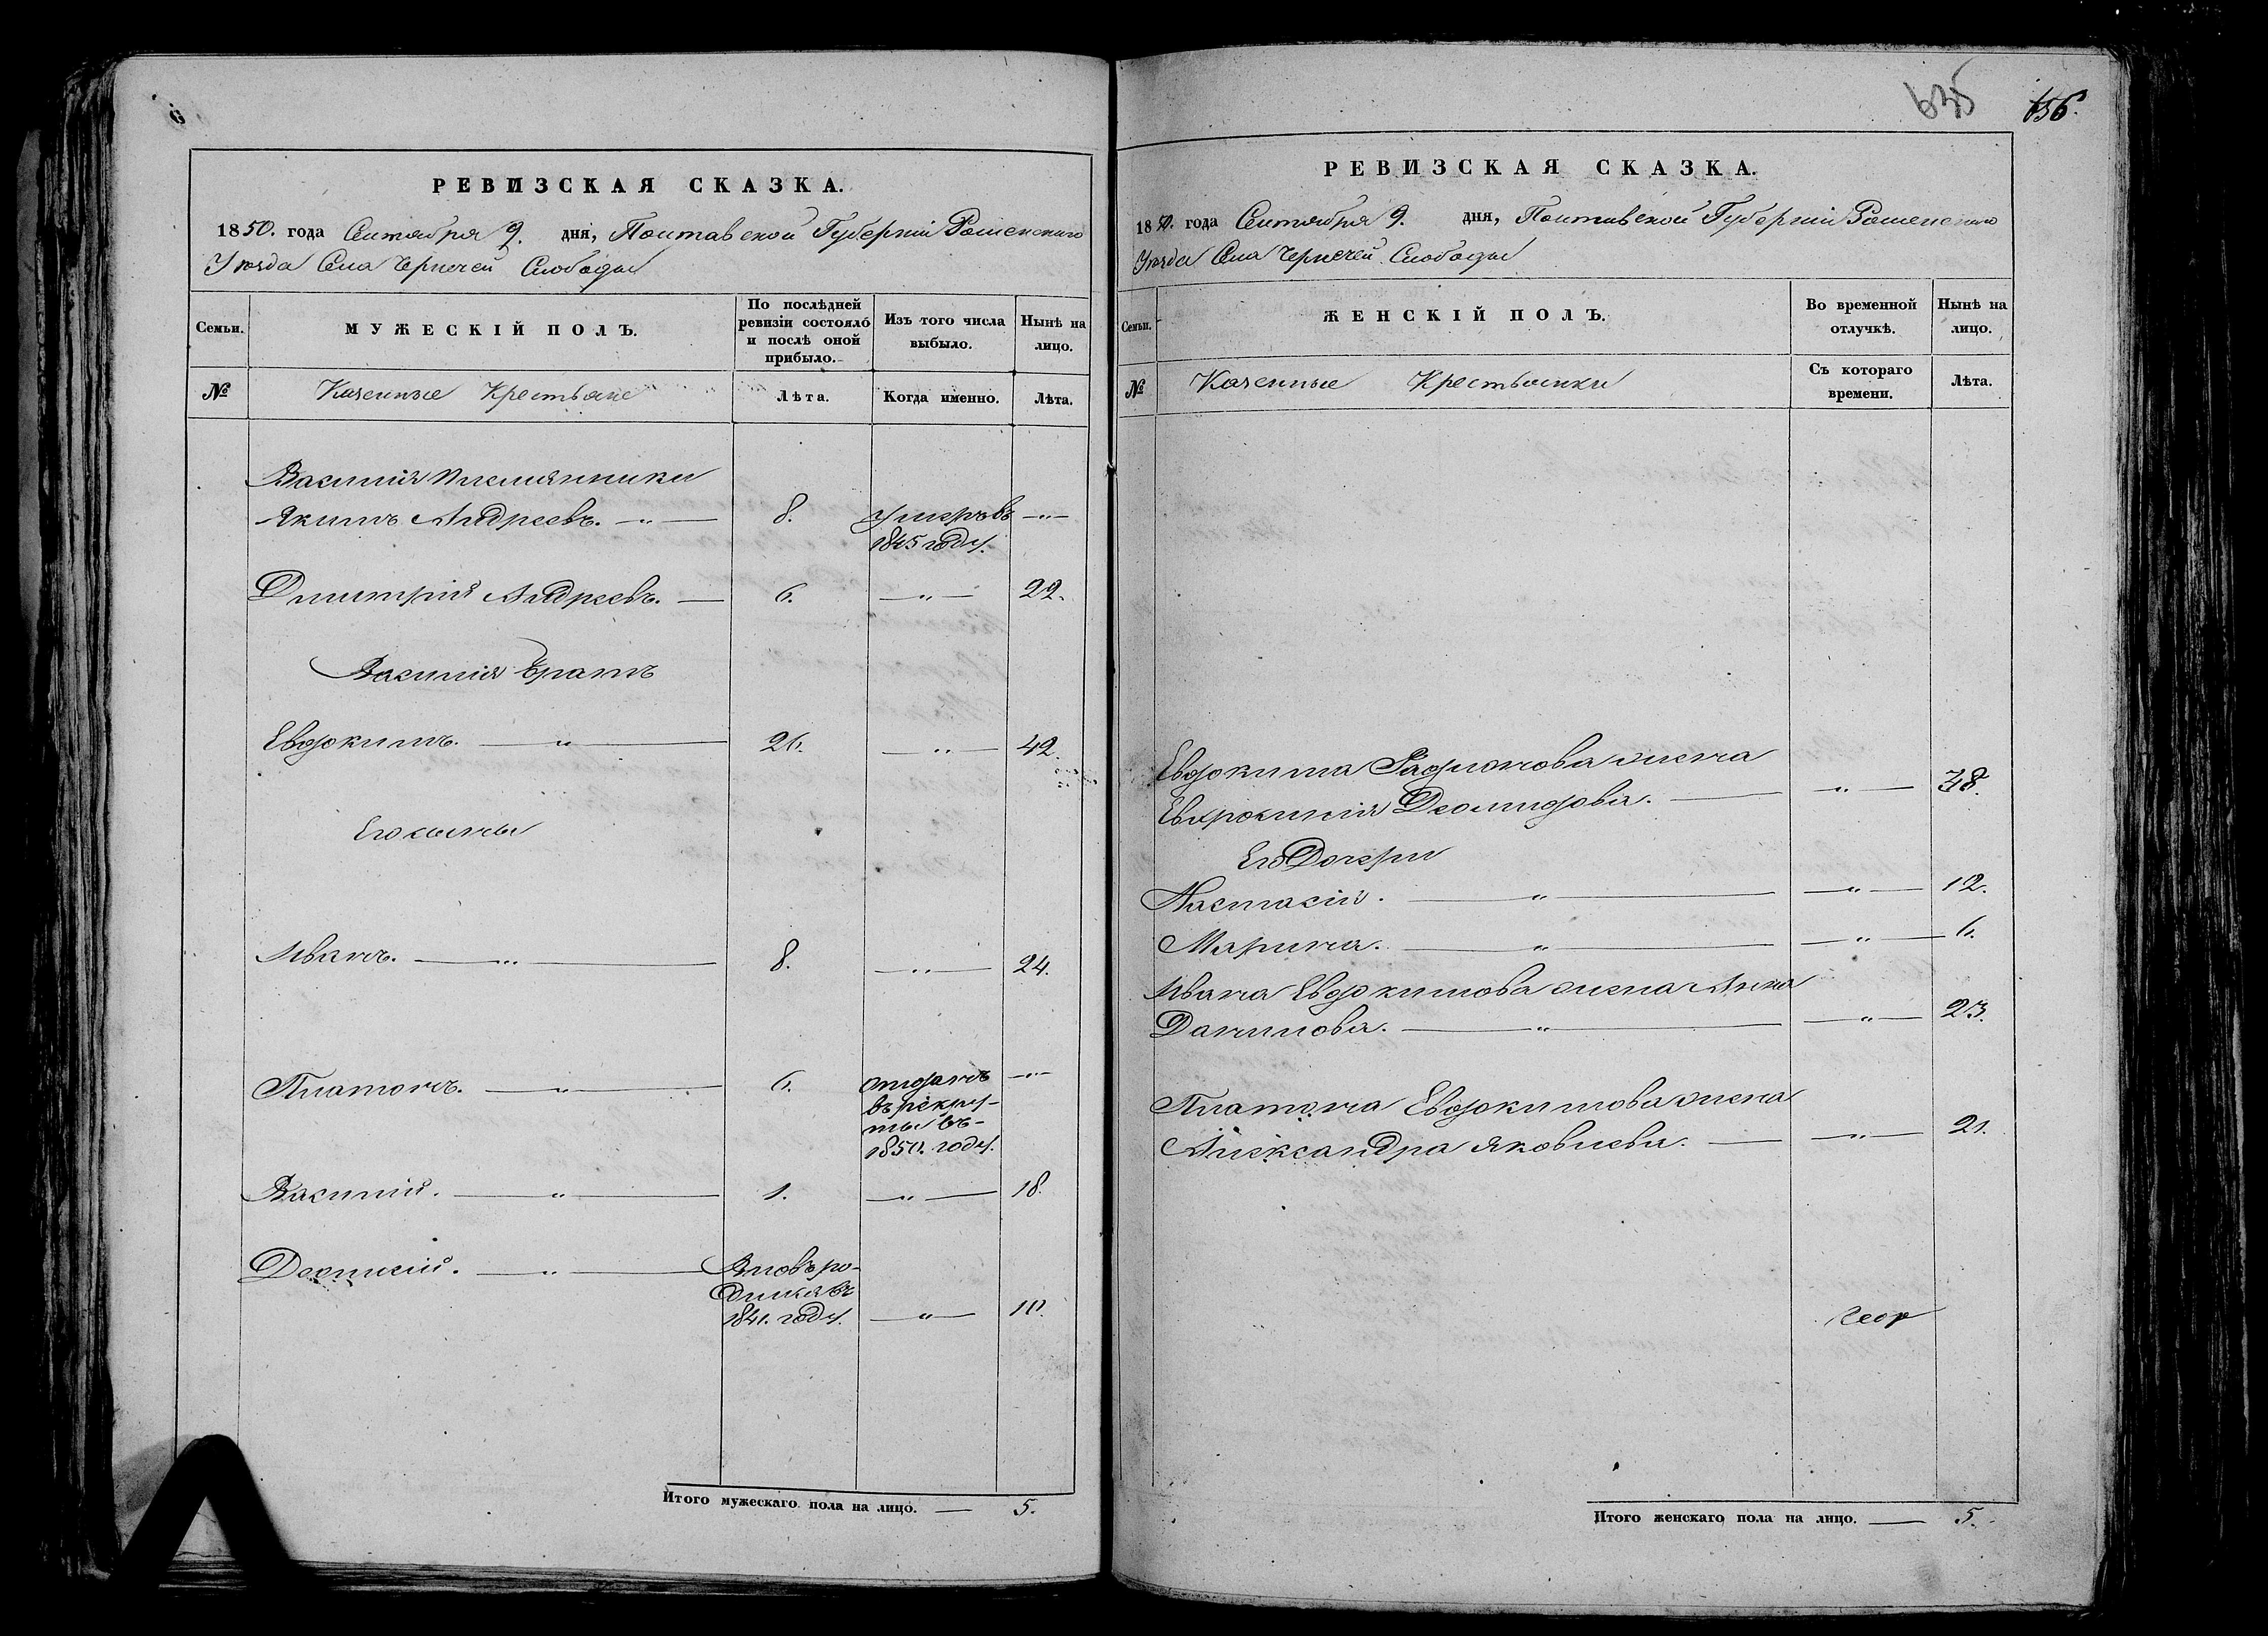 РЕВИЗСКАЯ СКАЗКА.
1850. года Сентября 9. дня, Полтавской Губерніи Роменскаго
Уѣзда Села Чернечей Слободы
Семьи.
МУЖЕСКІЙ ПОЛЪ.
По послѣдней ревизіи состояло и послѣ оной прибыло.
Изъ того числа выбыло.
Нынѣ на лицо.
№
Казенные Крестьяне
Лѣта.
Когда именно.
Лѣта.
Василія племянники
Якимъ Андреевъ. — 8. умеръ въ
1845 году.
Дмитрій Андреевъ. — 6. — 22.
Василія братъ
Евдокимъ. — 26. — 42.
Его сыны
Иванъ. — 8. — 24.
Платонъ. — 6. отданъ
въ рекру-
ты въ
1850. году.
Василій. — 1. — 18.
— Вновь ро-
дился въ
1841. году. — 10.
Итого мужескаго пола на лицо. — 5.
635
656.
РЕВИЗСКАЯ СКАЗКА.
1850. года Сентября 9. дня, Полтавской Губерніи Роменскаго
Уѣзда Села Чернечей Слободы
Семьи.
ЖЕНСКІЙ ПОЛЪ.
Во временной отлучкѣ.
Нынѣ на лицо.
№
Казенные Крестьянки
Съ котораго времени.
Лѣта.
Евдокима Радионова жена
Евфросинія Деомидова. — 38.
Его Дочери
Настасія. — 12.
Марина. — 6.
Ивана Евдокимова жена Анна
Данилова. — 23.
Платона Евдокимова жена
Александра Яковлева. — 21.
Итого женскаго пола на лицо. — 5.